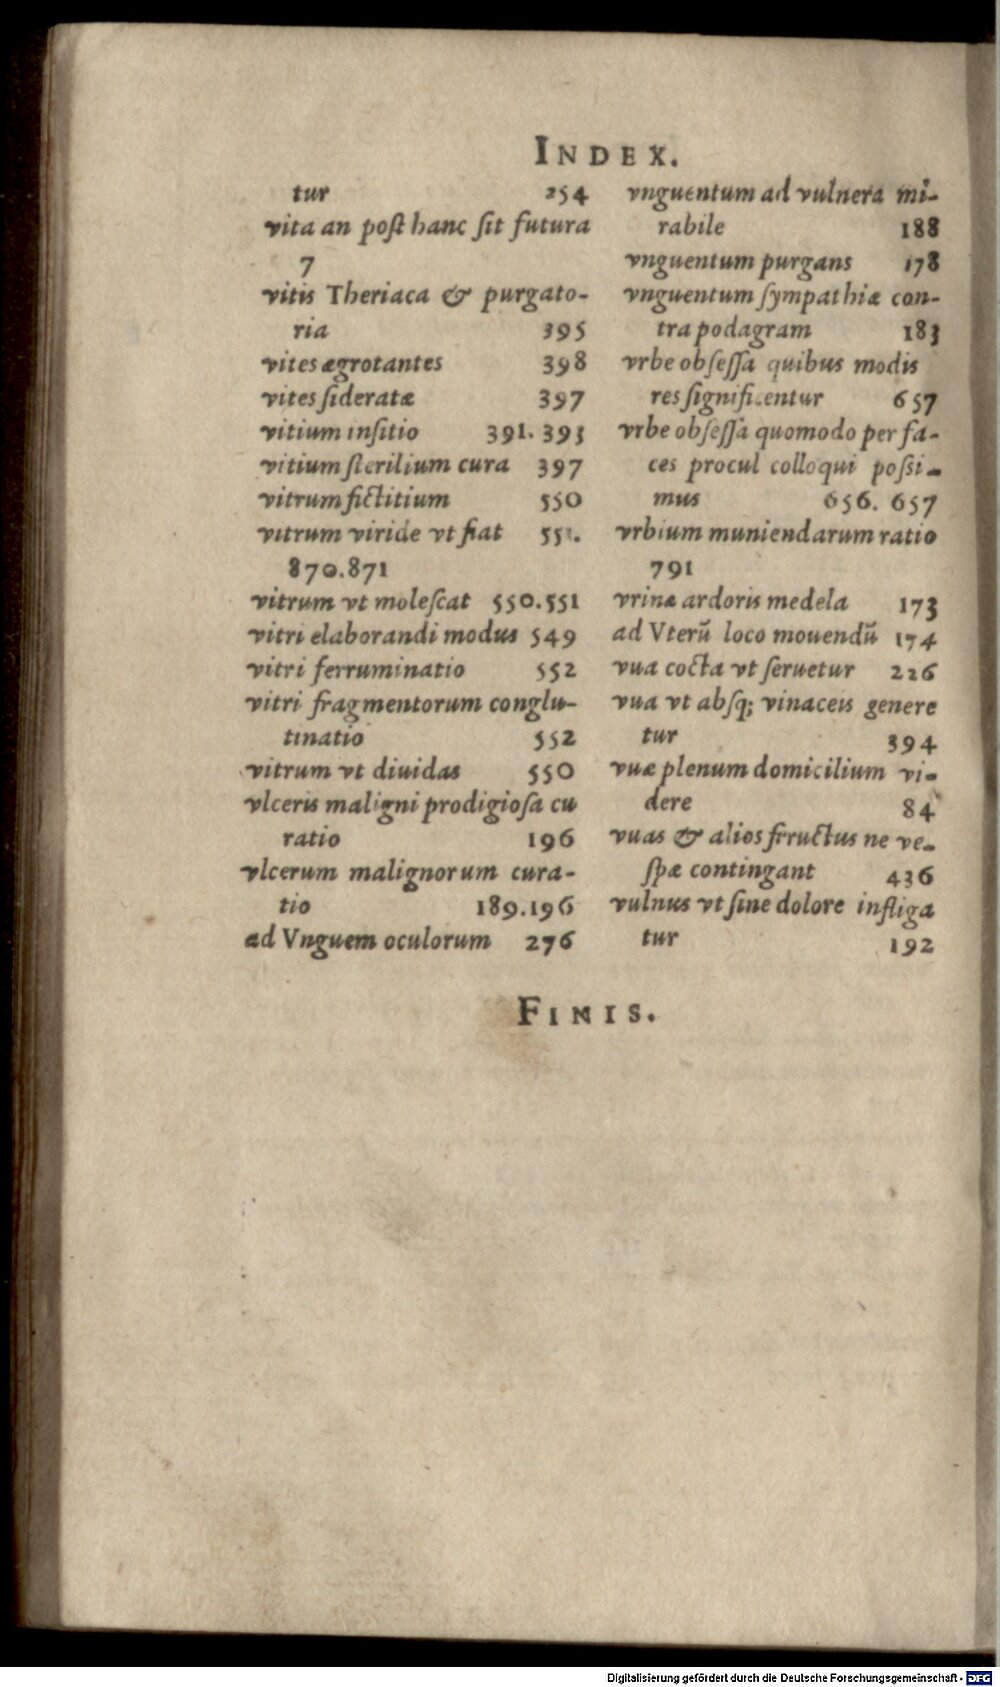 INDEX.
tur 254
vita an poſt hanc ſit futura
7
vitis Theriaca & purgato-
ria 395
vites ægrotantes 398
vites ſideratæ 397
vitium inſitio 391. 393
vitium ſterilium cura 397
vitrum fictitium 550
vitrum viride vt fiat 551.
870.871
vitrum vt moleſcat 550.551
vitri elaborandi modus 549
vitri ferruminatio 552
vitri fragmentorum conglu-
tinatio 552
vitrum vt diuidas 550
vlceris maligni prodigioſa cu
ratio 196
vlcerum malignorum cura-
tio 189.196
ad Vnguem oculorum 276
vnguentum ad vulnera mi-
rabile 188
vnguentum purgans 178
vnguentum ſympathiæ con-
tra podagram 183
vrbe obſeſſa quibus modis
res ſignificentur 657
vrbe obſeſſa quomodo per fa-
ces procul colloqui poſsi-
mus 656. 657
vrbium muniendarum ratio
791
vrinæ ardoris medela 173
ad Vterū loco mouendū 174
vua cocta vt ſeruetur 226
vua vt abſq; vinaceis genere
tur 394
vuæ plenum domicilium vi-
dere 84
vuas & alios frructus ne ve-
ſpæ contingant 436
vulnus vt ſine dolore infliga
tur 192
FINIS.
Digitalisierung gefördert durch die Deutsche Forschungsgemeinschaft - DFG